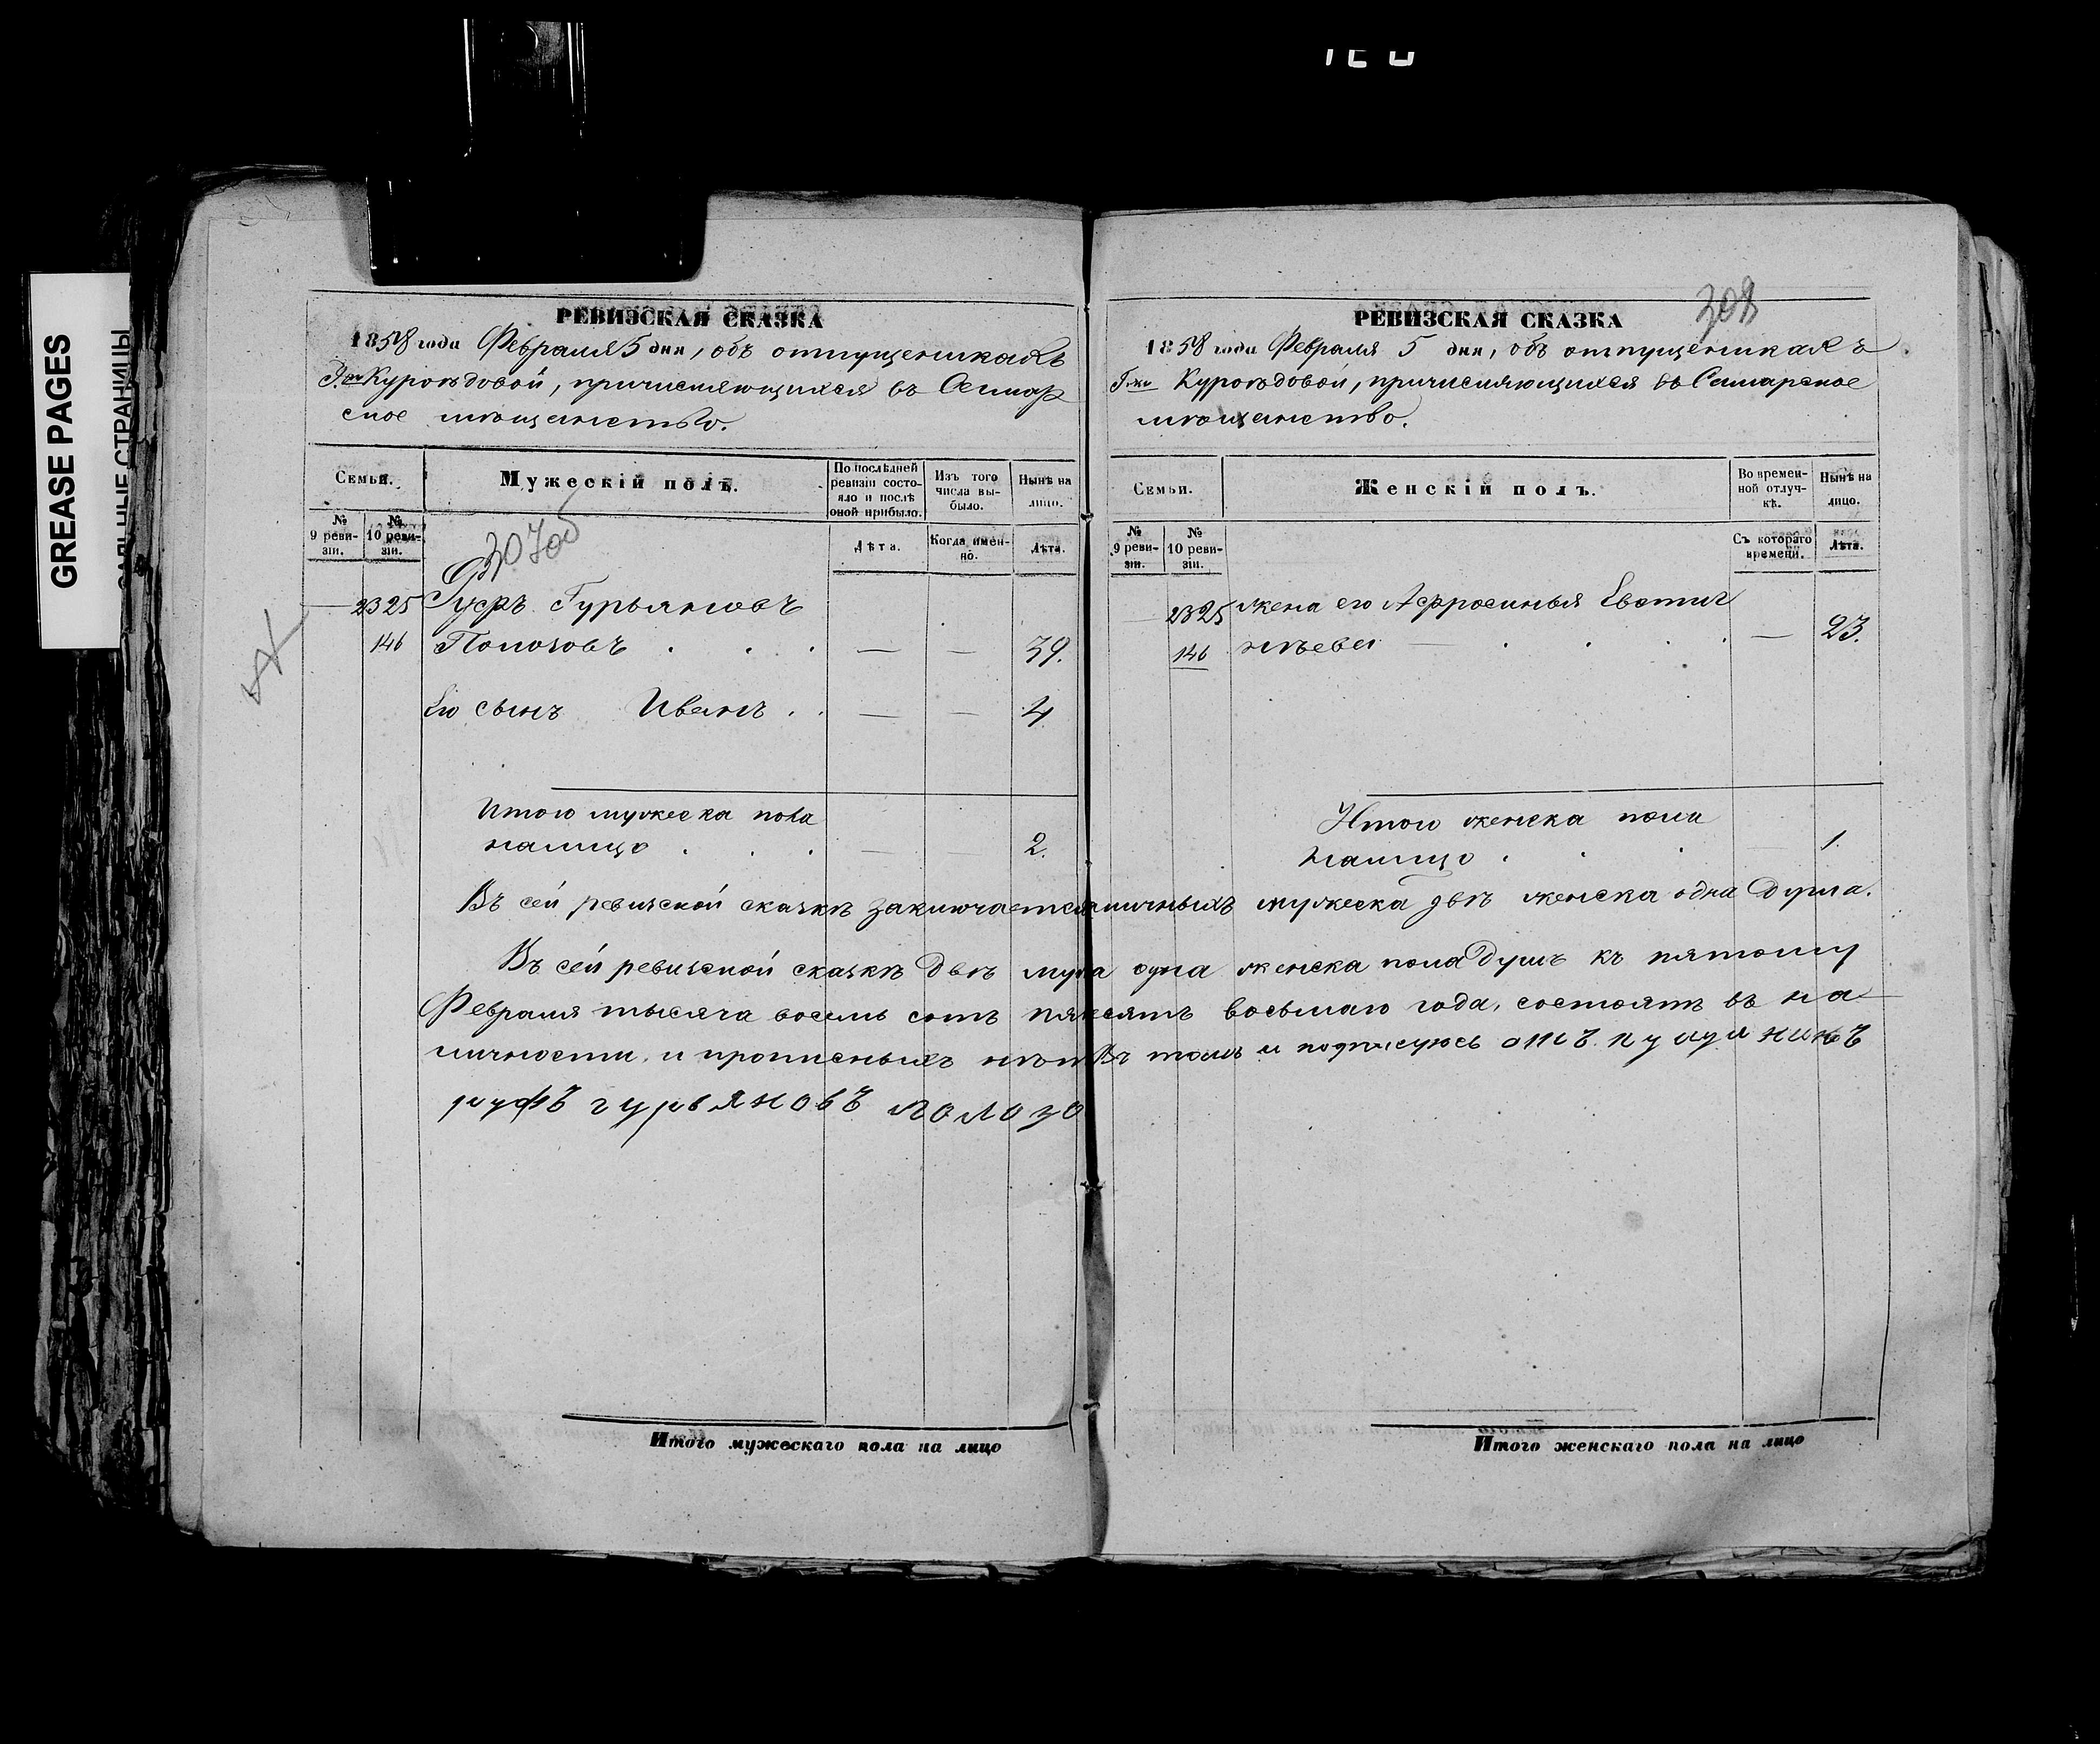 GREASE PAGES
САЛЬНЫЕ СТРАНИЦЫ
РЕВИЗСКАЯ СКАЗКА
1858 года Февраля 5 дня, объ отпущеникахъ
Г-жи Куроѣдовой, причисляющихся въ Самар
ское мѣщанство.
Семьи.
Мужескій полъ.
По послѣдней ревизіи состояло и послѣ оной прибыло.
Изъ того числа выбыло.
Нынѣ на лицо.
№ 9 ревизіи.
№ 10 ревизіи.
Лѣта.
Когда именно.
Лѣта.
2325 Руфъ Гурьяновъ
146 Полозовъ . . . — — 39.
Его сынъ Иванъ . . — — 4.
Итого мужеска пола
налицо . . . — — 2.
308
РЕВИЗСКАЯ СКАЗКА
1858 года Февраля 5 дня, объ отпущеникахъ
Г-жи Куроѣдовой, причисляющихся въ Самарское
мѣщанство.
Семьи.
Женскій полъ.
Во временной отлучкѣ.
Нынѣ на лицо.
№ 9 ревизіи.
№ 10 ревизіи.
Съ котораго времени.
Лѣта.
2325 жена его Афросинья Евстиг
146 нѣева — . . . — 23.
Итого женска пола
налицо . . . — 1.
Въ сей ревизской сказкѣ заключается личныхъ мужеска двѣ женска одна душа.
Въ сей ревизской сказкѣ двѣ муж одна женска пола душъ къ пятому
Февраля тысяча восемь сотъ пядесятъ восьмаго года, состоятъ въ на
личности, и прописныхъ нѣтъ Въ томъ и подписуюсь отъпущиникъ
руфъ гурьяновъ полозо
Итого мужескаго пола на лицо
Итого женскаго пола на лицо